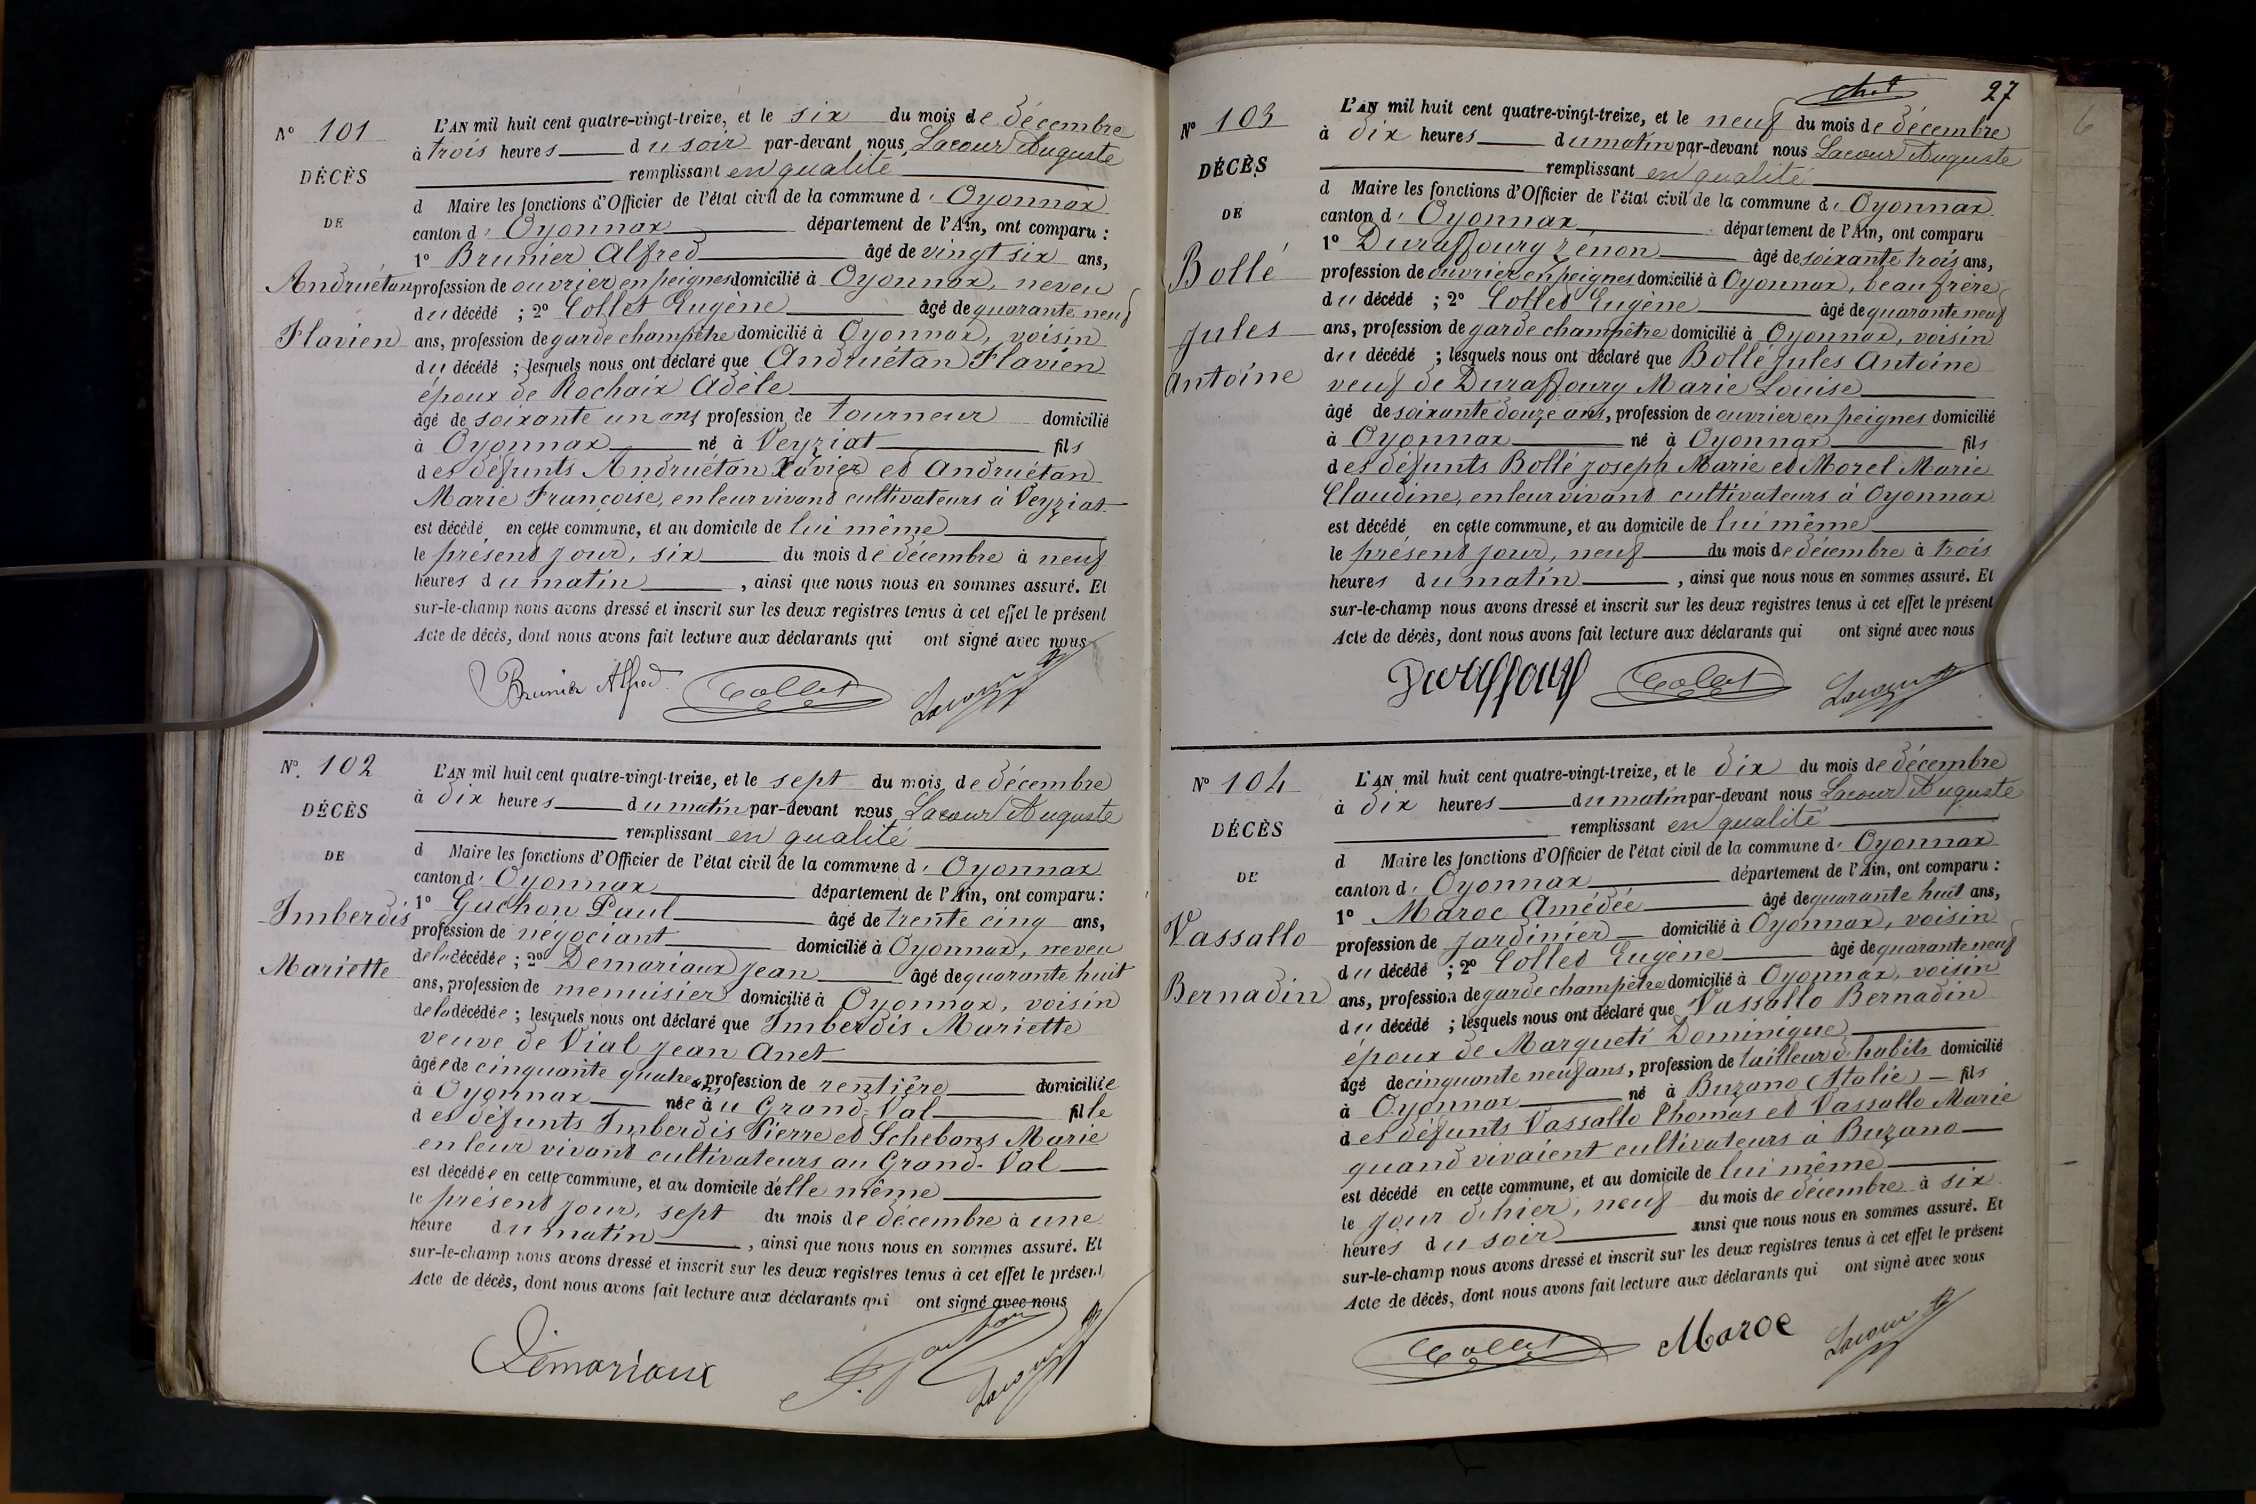 N° 101
DÉCÈS
DE
Andruétan
Flavien
L'AN mil huit cent quatre-vingt-treize, et le six du mois de décembre
à trois heures du soir par-devant nous, Lacour Auguste
remplissant en qualité
d Maire les fonctions d'Officier de l'état civil de la commune d' Oyonnax
canton d' Oyonnax département de l'Ain, ont comparu :
1° Brunier Alfred âgé de vingt six ans,
profession de ouvrier en peignes domicilié à Oyonnax, neveu
du décédé ; 2° Collet Eugène âgé de quarante neuf
ans, profession de garde champêtre domicilié à Oyonnax, voisin
du décédé ; lesquels nous ont déclaré que Andruétan Flavien
époux de Rochaix Adèle
âgé de soixante un ans profession de tourneur domicilié
à Oyonnax né à Veyziat fils
des défunts Andruétan Xavier et Andruétan
Marie Françoise, en leur vivant cultivateurs à Veyziat
est décédé en cette commune, et au domicile de lui même
le présent jour, six du mois de décembre à neuf
heures du matin , ainsi que nous nous en sommes assuré. Et
sur-le-champ nous avons dressé et inscrit sur les deux registres tenus à cet effet le présent
Acte de décès, dont nous avons fait lecture aux déclarants qui ont signé avec nous
Brunier Alfred Collet Lacour
N° 102
DÉCÈS
DE
Imberdis
Mariette
L'AN mil huit cent quatre-vingt-treize, et le sept du mois de décembre
à dix heures du matin par-devant nous Lacour Auguste
remplissant en qualité
d Maire les fonctions d'Officier de l'état civil de la commune d' Oyonnax
canton d' Oyonnax département de l'Ain, ont comparu :
1° Guchon Paul âgé de trente cinq ans,
profession de négociant domicilié à Oyonnax, neveu
de la décédée ; 2° Demariaux Jean âgé de quarante huit
ans, profession de menuisier domicilié à Oyonnax, voisin
de la décédée ; lesquels nous ont déclaré que Imberdis Mariette
veuve de Vial Jean Anet
âgée de cinquante quatre ans profession de rentière domiciliée
à Oyonnax née à u Grand-Val fille
des défunts Imberdis Pierre et Schebans Marie
en leur vivant cultivateurs au Grand-Val
est décédée en cette commune, et au domicile d'elle même
le présent jour, sept du mois de décembre à une
heure du matin , ainsi que nous nous en sommes assuré. Et
sur-le-champ nous avons dressé et inscrit sur les deux registres tenus à cet effet le présent
Acte de décès, dont nous avons fait lecture aux déclarants qui ont signé avec nous
Démariaux Lacour
27
N° 103
DÉCÈS
DE
Bollé
Jules
Antoine
L'AN mil huit cent quatre-vingt-treize, et le neuf du mois de décembre
à dix heures du matin par-devant nous Lacour Auguste
remplissant en qualité
d Maire les fonctions d'Officier de l'état civil de la commune d' Oyonnax
canton d' Oyonnax département de l'Ain, ont comparu
1° Duraffourg Zénon âgé de soixante trois ans,
profession de ouvrier en peignes domicilié à Oyonnax, beau frère
du décédé ; 2° Collet Eugène âgé de quarante neuf
ans, profession de garde champêtre domicilié à Oyonnax, voisin
du décédé ; lesquels nous ont déclaré que Bollé Jules Antoine
veuf de Duraffourg Marie Louise
âgé de soixante douze ans, profession de ouvrier en peignes domicilié
à Oyonnax né à Oyonnax fils
des défunts Bollé Joseph Marie et Morel Marie
Claudine, en leur vivant cultivateurs à Oyonnax
est décédé en cette commune, et au domicile de lui même
le présent jour, neuf du mois de décembre à trois
heures du matin , ainsi que nous nous en sommes assuré. Et
sur-le-champ nous avons dressé et inscrit sur les deux registres tenus à cet effet le présent
Acte de décès, dont nous avons fait lecture aux déclarants qui ont signé avec nous
Duraffourg Collet Lacour
N° 104
DÉCÈS
DE
Vassallo
Bernadin
L'AN mil huit cent quatre-vingt-treize, et le dix du mois de décembre
à dix heures du matin par-devant nous Lacour Auguste
remplissant en qualité
d Maire les fonctions d'Officier de l'état civil de la commune d' Oyonnax
canton d' Oyonnax département de l'Ain, ont comparu :
1° Maroc Amédée âgé de quarante huit ans,
profession de jardinier domicilié à Oyonnax, voisin
du décédé ; 2° Collet Eugène âgé de quarante neuf
ans, profession de garde champêtre domicilié à Oyonnax, voisin
du décédé ; lesquels nous ont déclaré que Vassallo Bernadin
époux de Marqueti Dominique
âgé de cinquante neuf ans, profession de tailleur d'habits domicilié
à Oyonnax né à Buzano (Italie) fils
des défunts Vassallo Thomas et Vassallo Marie
quand vivaient cultivateurs à Buzano
est décédé en cette commune, et au domicile de lui même
le jour d'hier, neuf du mois de décembre à six
heures du soir ainsi que nous nous en sommes assuré. Et
sur-le-champ nous avons dressé et inscrit sur les deux registres tenus à cet effet le présent
Acte de décès, dont nous avons fait lecture aux déclarants qui ont signé avec nous
Collet Maroc Lacour
6